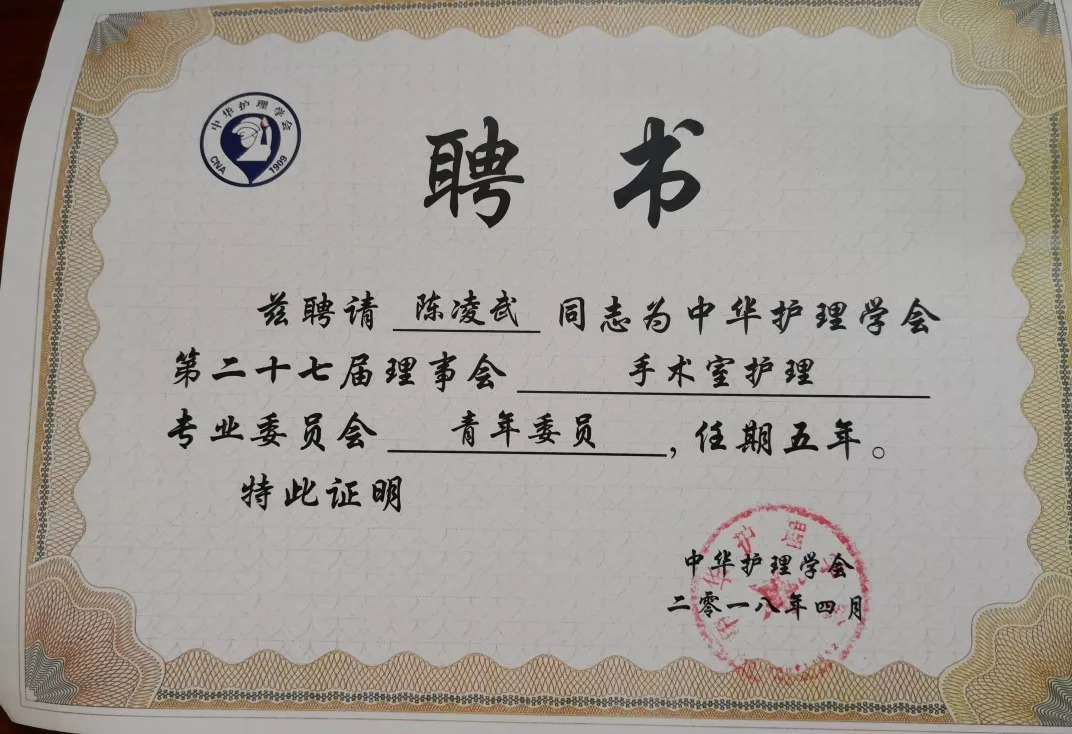 中华护理学会
CNA 1909
聘书
兹聘请 陈凌武 同志为中华护理学会
第二十七届理事会 手术室护理
专业委员会 青年委员,任期五年。
特此证明
中华护理学会
二零一八年四月